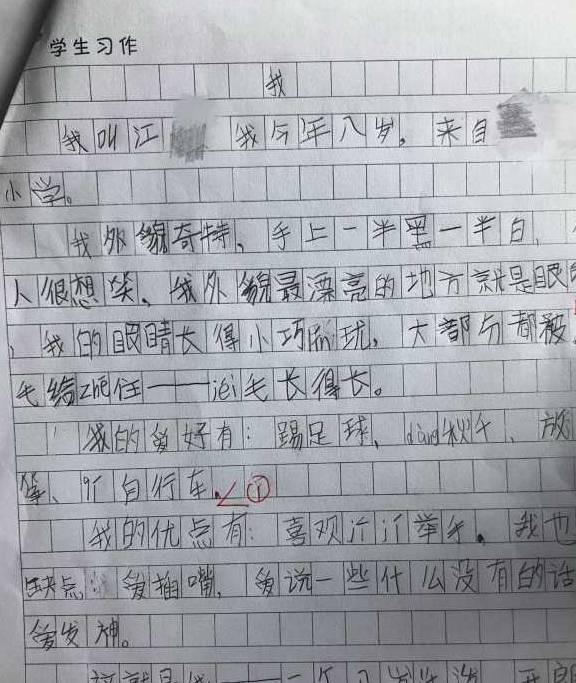 学生习作
我
我叫江 我今年八岁,来自
小学。
我外貌奇特、手上一半黑一半白,
人很想笑、我外貌最漂亮的地方就是眼
、我的眼睛长得小巧líng珑,大部分都被
毛给zhē住——jié毛长得长。
我的爱好有:踢足球、dàng秋千、放
筝、qí自行车。①
我的优点有:喜欢 举手。我也
缺点:爱插嘴,爱说一些什么没有的话
爱发神。
这就是我——一个 活 开朗